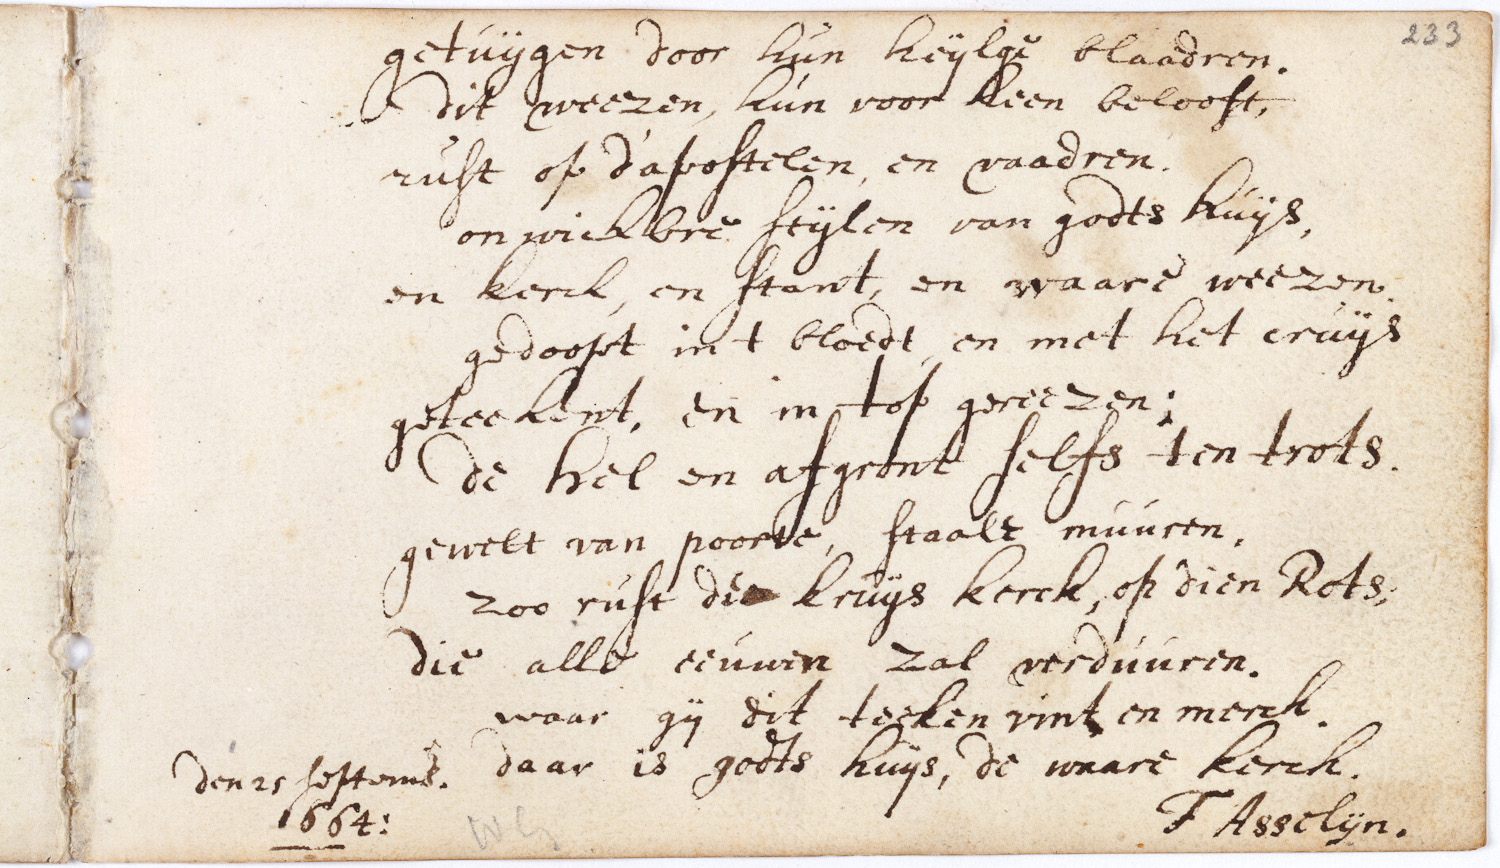 233
getuÿgen door hun heÿlge blaadren.
dit weezen, hun voor heen belooft,
rust op d'apostelen, en vaadren.
onwickbre stÿlen van godts huÿs,
en kerck, en stant, en waare weezen.
gedoopt in t bloedt, en met het cruÿs
geteekent, en in top gereezen;
de hel en afgront selfs ten trots.
gewelt van poorte, staale muuren,
zoo rust die kruÿs kerck, op dien Rots,
die alle eeuwen zal verduuren.
waar gÿ dit teeken vint en merck.
daar is godts huÿs, de waare kerck.
den 25 septemb.
1664:
T Asselÿn.